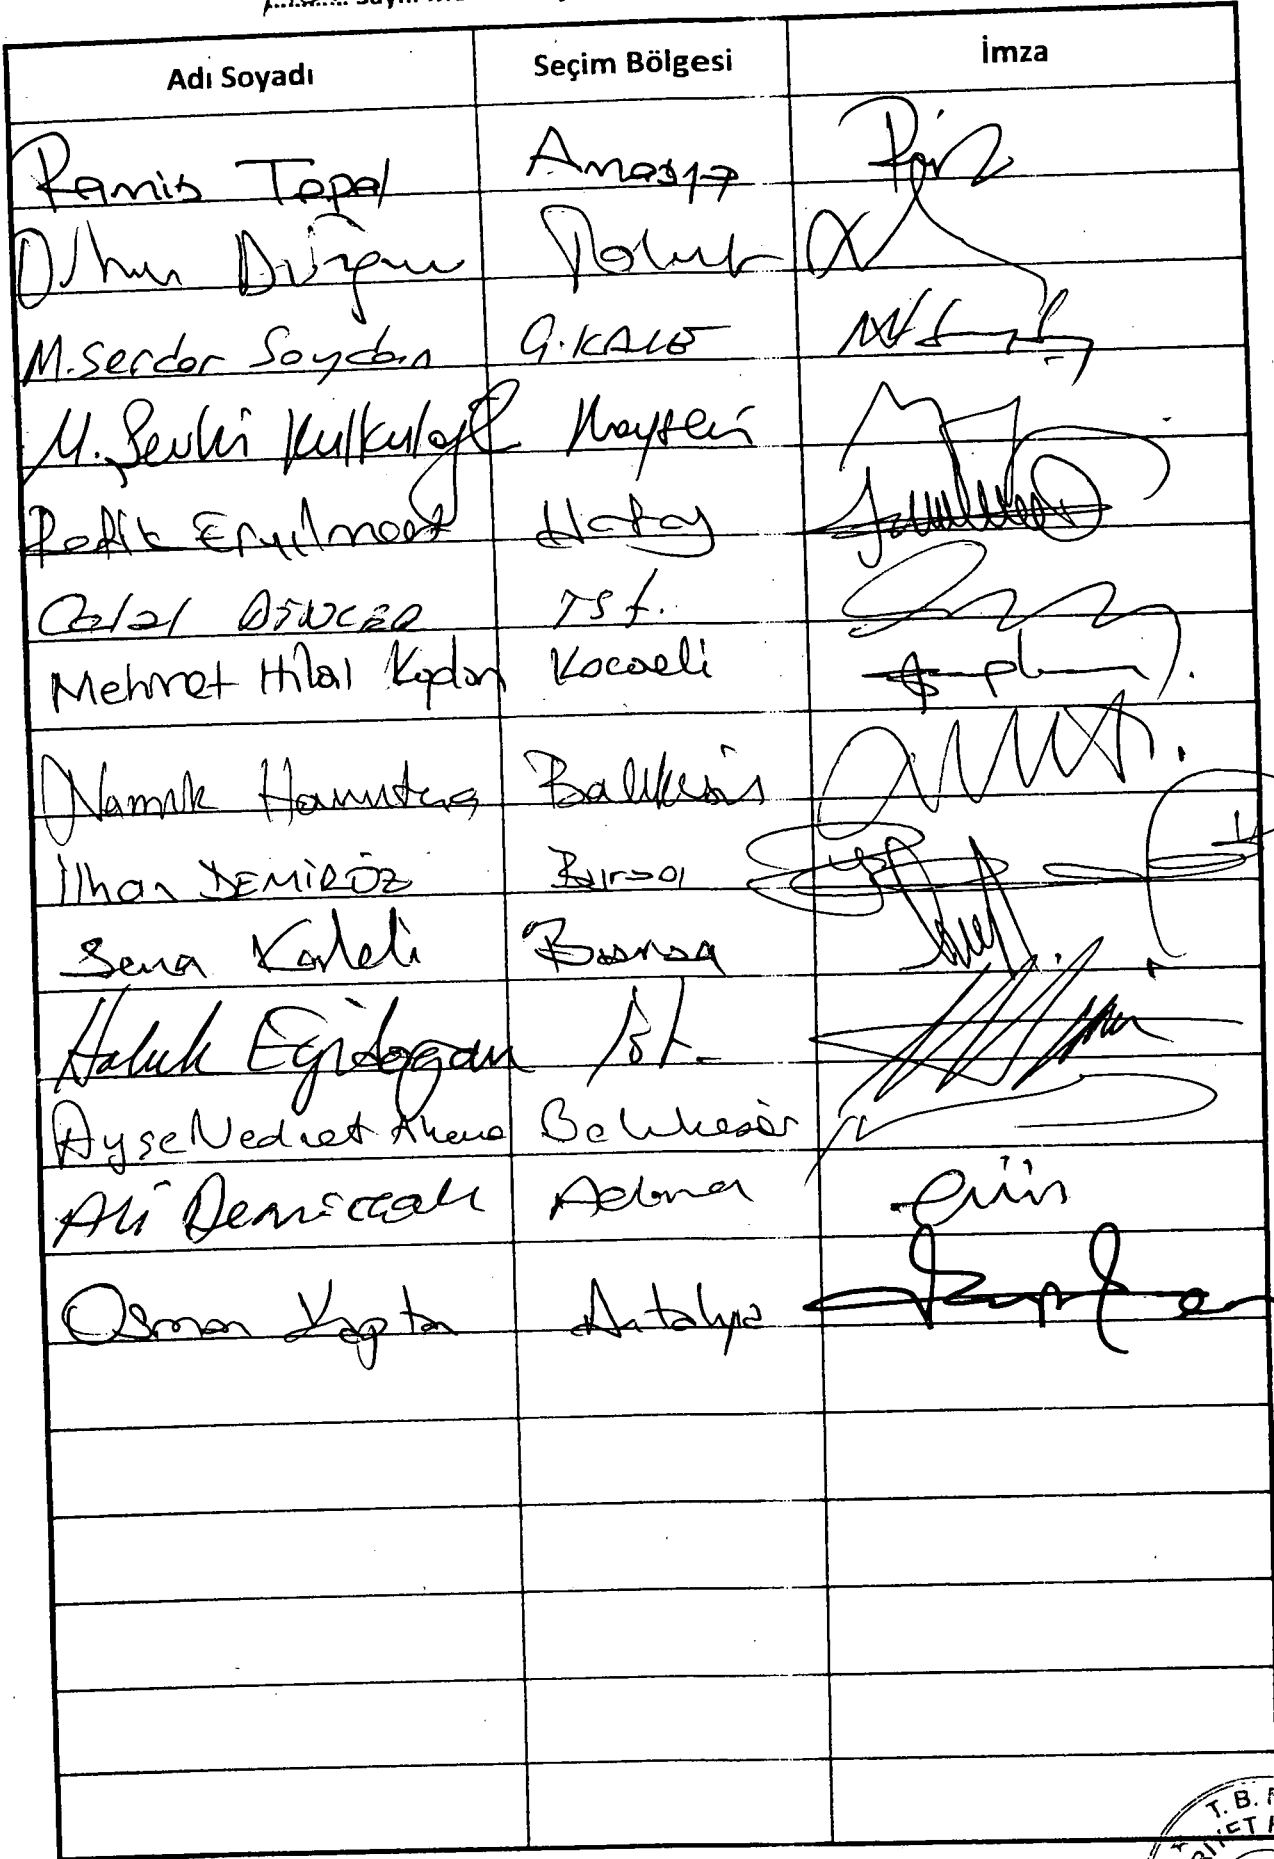 Adı Soyadı Seçim Bölgesi İmza
Ramis Topal Amasya
Orhan Düzgün Tokat
M. Serdar Soydan Ç.KALE
M. Şevki Kulkuloğlu Kayseri
Refik Eryılmaz Hatay
Celal DİNÇER İst.
Mehmet Hilal Kaplan Kocaeli
Namık Havutça Balıkesir
İlhan DEMİRÖZ Bursa
Sena Kaleli Bursa
Haluk Eyidoğan İst.
Ayşe Nedret Akova Balıkesir
Ali Demirçalı Adana
Osman Kaptan Antalya
T. B.